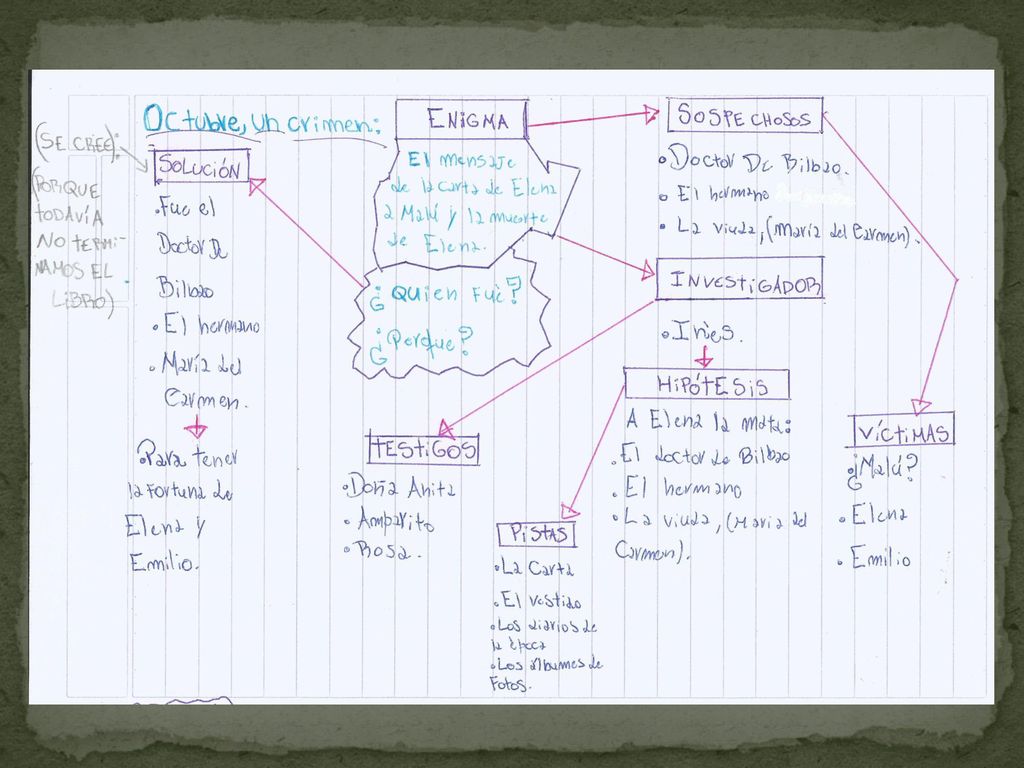 Octubre, un crimen:
(SE CREE):
(PORQUE
TODAVÍA
NO TERMI-
NAMOS EL
LIBRO)
SOLUCIÓN
•Fue el
Doctor De
Bilbao
• El hermano
• María del
Carmen.
•Para tener
la fortuna de
Elena y
Emilio.
ENIGMA
El mensaje
de la carta de Elena
a Malú y la muerte
de Elena.
¿QUIEN FUE?
¿Porque?
SOSPECHOSOS
• Doctor De Bilbao.
• El hermano
• La viuda, (María del Carmen).
INVESTIGADOR
• Inés.
HIPÓTESIS
A Elena la mata:
• El doctor de Bilbao
• El hermano
• La viuda, (Maria del
Carmen).
TESTIGOS
•Doña Anita
• Amparito
• Rosa.
PISTAS
• La Carta
• El vestido
•Los diarios de
la época
•Los álbumes de
Fotos.
VÍCTIMAS
•¿Malú?
• Elena
• Emilio